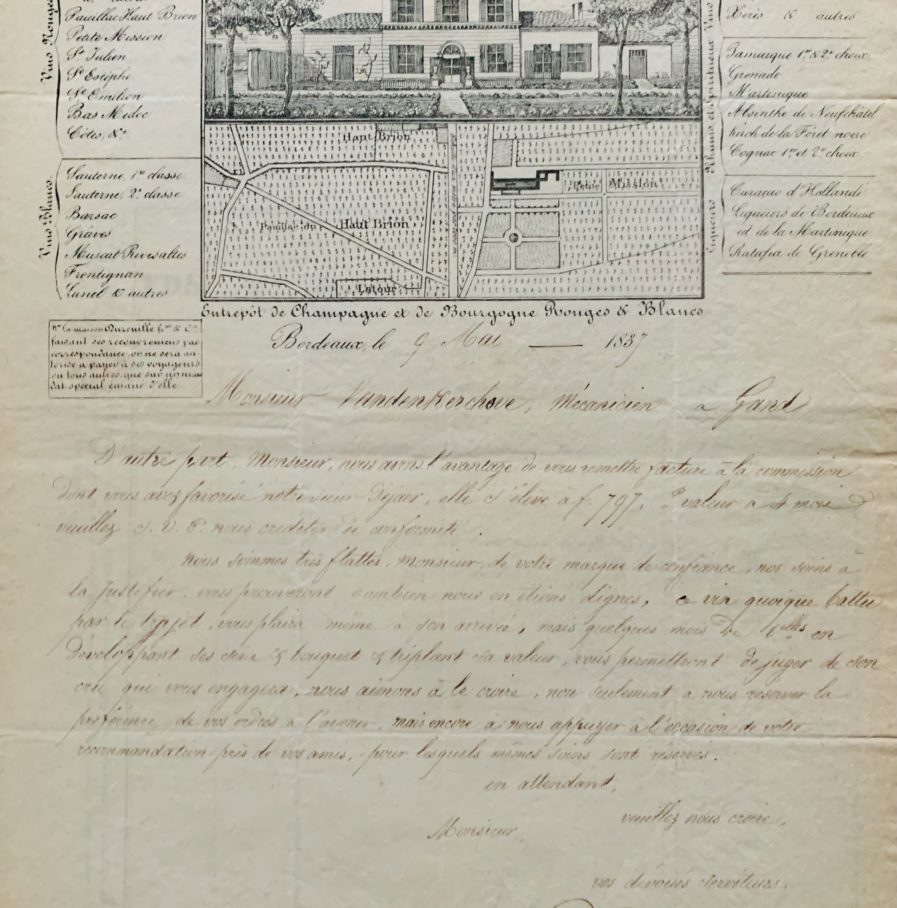 Vins Rouges
Pauillac Haut Brion
Petite Mission
St Julien
St Estèphe
St Emilion
Bas Médoc
Côtes, &a
Vins Blancs
Sauterne 1re classe
Sauterne 2e classe
Barsac
Graves
Muscat Rivesaltes
Frontignan
Lunel & autres
Haut Brion
Pauillac du Haut Brion
Latour
Petite Mission
Vins
Xérès & autres
Rhums et
Jamaique 1er & 2e choix
Grenade
Martinique
Absinthe de Neufchâtel
Kirch de la Forêt noire
Cognac 1er et 2e choix
Liqueurs
Curaçao d'Hollande
Liqueurs de Bordeaux
et de la Martinique
Ratafia de Grenoble
Entrepôt de Champagne et de Bourgogne Rouges & Blancs
Na La maison & Ce
faisant ses recouvremens par
correspondance, on ne sera au-
torisé à payer à ses voyageurs
ou tous autres, que sur un man
dat spécial émané d'elle
Bordeaux, le 9 Mai 1837
Monsieur Vandenkerchove, Mécanicien à Gand
D'autre part, Monsieur, nous avons l'avantage de vous remettre facture à la commission
dont vous avez favorisé notre sieur Dejair, elle s'élève à f. 797, valeur à 4 mois
veuillez S. V. P. nous créditer de conformité.
Nous sommes très flattés, monsieur, de votre marque de confiance, nos soins à
la justifier, vous prouveront combien nous en étions dignes, ce vin quoique battu
par le trajet, vous plaira même à son arrivée, mais quelques mois de blles en
développant ses sève & bouquet & triplant sa valeur, vous permettront de juger de son
cru qui vous engagera, nous aimons à le croire, non seulement à nous réserver la
préférence de vos ordres à l'avenir, mais encore à nous appuyer à l'occasion de votre
recommandation près de vos amis, pour lesquels mêmes soins sont réservés.
en attendant,
veuillez nous croire,
Monsieur,
vos dévoués serviteurs.